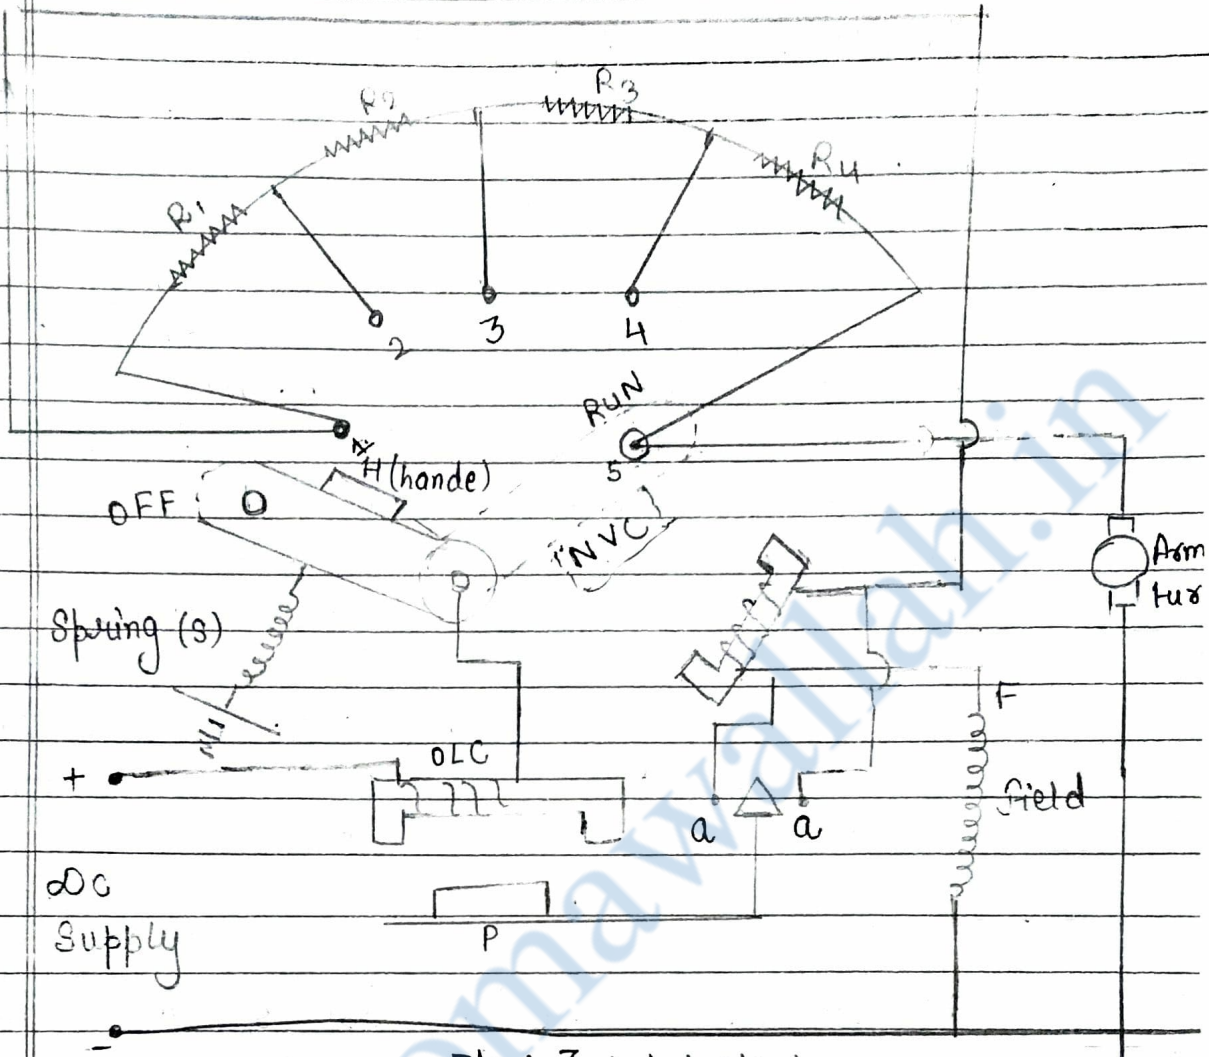 R3
R2
R4
R1
2
3
4
RUN
1
H (hande)
5
OFF
NVC
Arm
tur
Spring (S)
F
OLC
+
Field
a
a
DC
Supply
P
-
omawallah.in